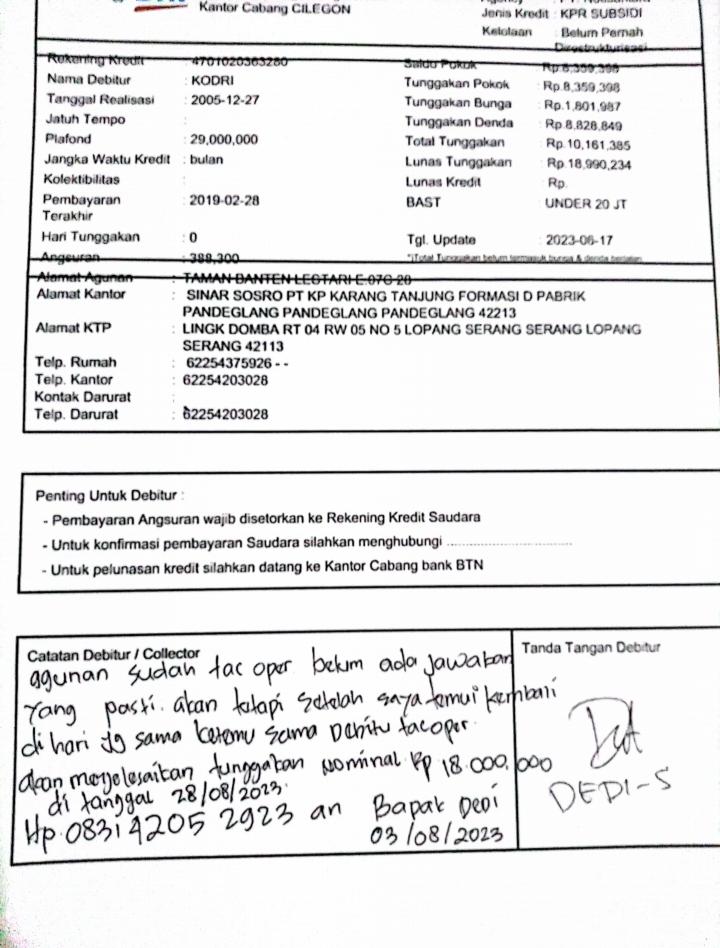 Kantor Cabang CILEGON
Jenis Kredit : KPR SUBSIDI
Kelolaan : Belum Pernah
Direstrukturisasi
Rekening Kredit : 4701020363280
Saldo Pokok : Rp.8,359,398
Nama Debitur : KODRI
Tunggakan Pokok : Rp.8,359,398
Tanggal Realisasi : 2005-12-27
Tunggakan Bunga : Rp.1,801,987
Jatuh Tempo :
Tunggakan Denda : Rp.8,828,849
Plafond : 29,000,000
Total Tunggakan : Rp.10,161,385
Jangka Waktu Kredit : bulan
Lunas Tunggakan : Rp.18,990,234
Kolektibilitas :
Lunas Kredit : Rp.
Pembayaran Terakhir : 2019-02-28
BAST : UNDER 20 JT
Hari Tunggakan : 0
Tgl. Update : 2023-06-17
Angsuran : 388,300
*)Total Tunggakan belum termasuk bunga & denda berjalan
Alamat Agunan : TAMAN BANTEN LESTARI E.07C 28
Alamat Kantor : SINAR SOSRO PT KP KARANG TANJUNG FORMASI D PABRIK
PANDEGLANG PANDEGLANG PANDEGLANG 42213
Alamat KTP : LINGK DOMBA RT 04 RW 05 NO 5 LOPANG SERANG SERANG LOPANG
SERANG 42113
Telp. Rumah : 62254375926 - -
Telp. Kantor : 62254203028
Kontak Darurat :
Telp. Darurat : 62254203028
Penting Untuk Debitur :
- Pembayaran Angsuran wajib disetorkan ke Rekening Kredit Saudara
- Untuk konfirmasi pembayaran Saudara silahkan menghubungi ..............................
- Untuk pelunasan kredit silahkan datang ke Kantor Cabang bank BTN
Catatan Debitur / Collector
aggunan sudah tac oper belum ada jawaban
yang pasti. akan tetapi setelah saya temui kembali
di hari yg sama ketemu sama Debitu tacoper.
akan menyelesaikan tunggakan nominal Rp 18.000.000
di tanggal 28/08/2023.
Hp. 0831 4205 2923 an Bapak Dedi
03/08/2023
Tanda Tangan Debitur
DEDI-S